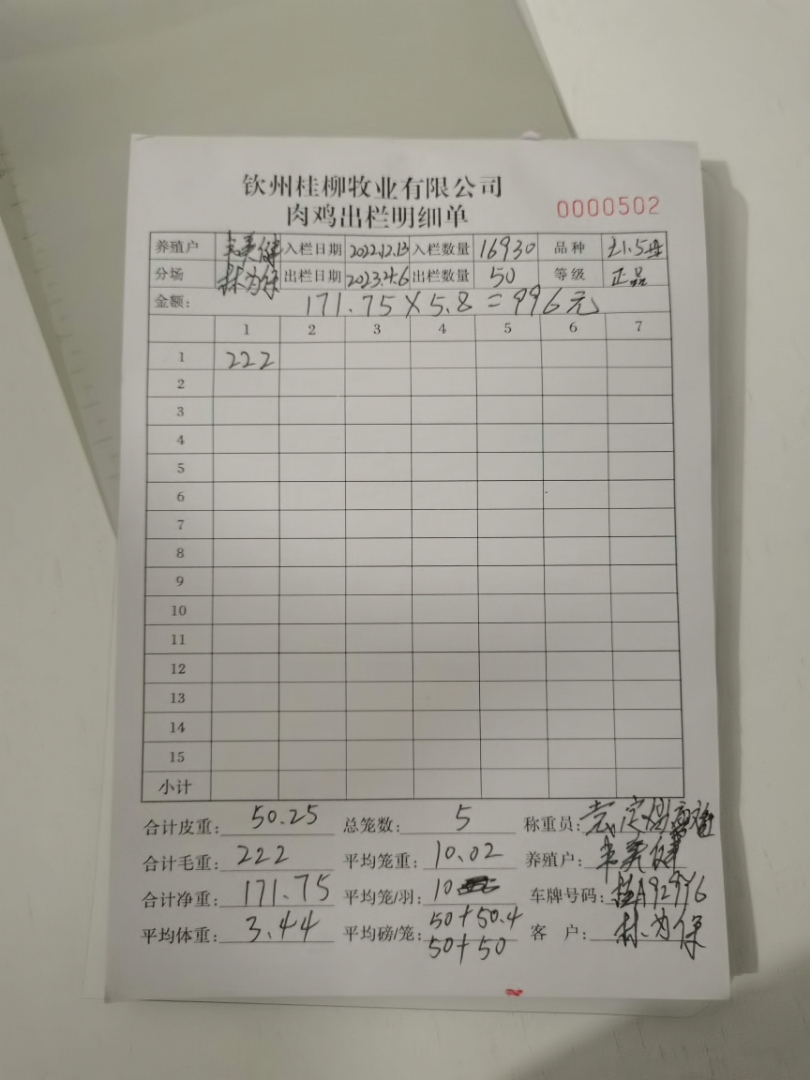 钦州桂柳牧业有限公司
肉鸡出栏明细单
0000502
养殖户 入栏日期 2022.12.13 入栏数量 16930 品种
分场 林为保 出栏日期 2023.4.6 出栏数量 50 等级 正品
金额: 171.75×5.8=996元
1 2 3 4 5 6 7
1 222
2
3
4
5
6
7
8
9
10
11
12
13
14
15
小计
合计皮重: 50.25 总笼数: 5 称重员:
合计毛重: 222 平均笼重: 10.02 养殖户:
合计净重: 171.75 平均笼/羽: 10 车牌号码:
平均体重: 3.44 平均磅/笼: 50+50.4 客 户: 林为保
50+50